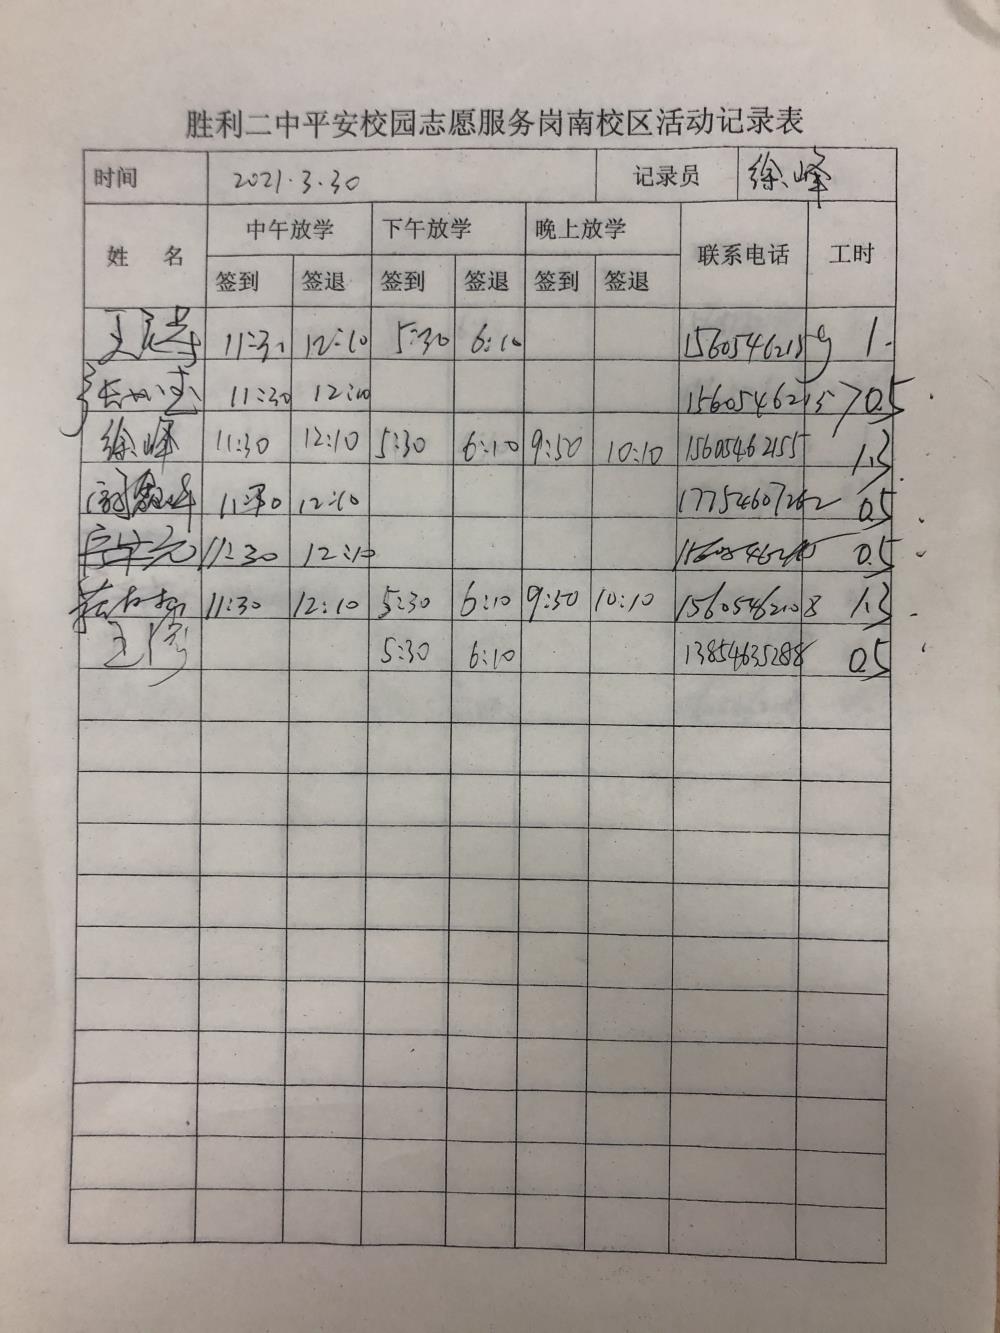 胜利二中平安校园志愿服务岗南校区活动记录表
时间 2021.3.30 记录员 徐峰
姓 名 中午放学 下午放学 晚上放学 联系电话 工时
签到 签退 签到 签退 签到 签退
11:30 12:10 5:30 6:10 15605462159 1.
11:30 12:10 15605462157 0.5
徐峰 11:30 12:10 5:30 6:10 9:50 10:10 15605462155 1.3
11:30 12:10 17754607262 0.5
11:30 12:10 0.5
11:30 12:10 5:30 6:10 9:50 10:10 15605462108 1.3
5:30 6:10 13854635288 0.5